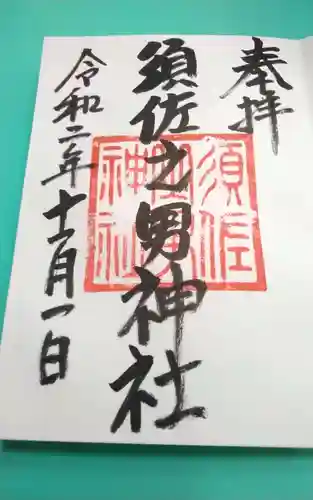 奉拝
須佐之男神社
須佐
之男
神社
令和二年十一月一日